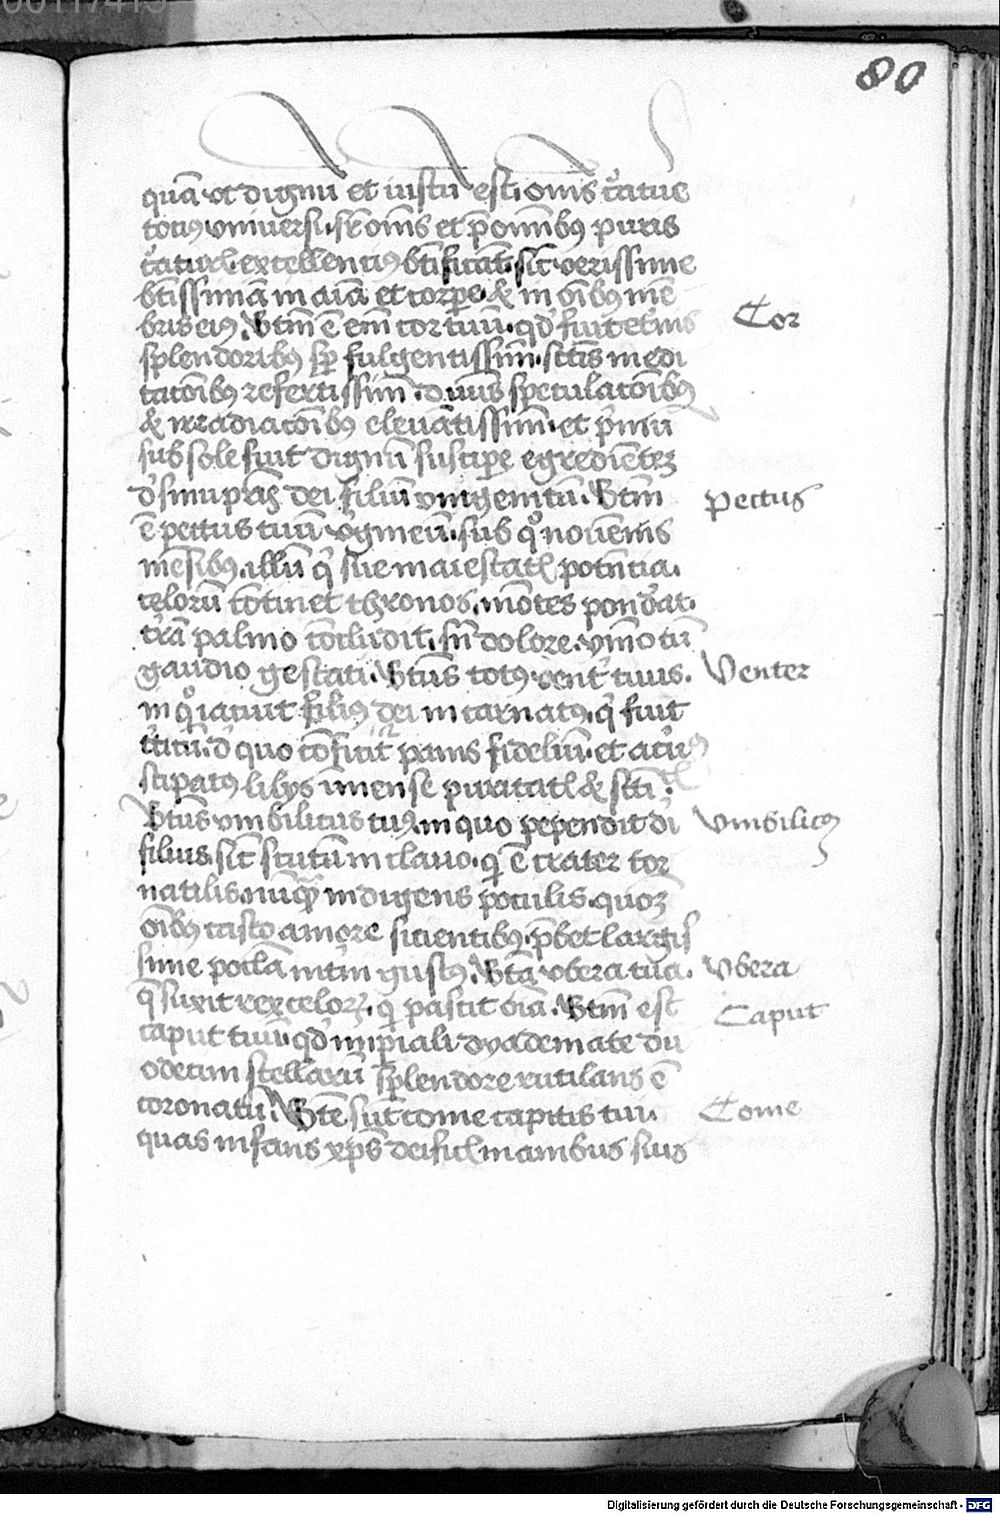 00117413
80
quā vt dignū et iustū est omīs c̄atuē
totiꝰ vniuersi sr̄ om̄s et p̄ omībꝰ puris
c̄aturꝭ excellentiꝰ btīficāt sic̄ verissime
btīssimā in aīa et corpe & in oībꝰ mē
bris eiꝰ. Btm̄ ē em̄ cor tuū qd̄ fuit et̄nis
splendoribꝰ sp̄ fulgentissim̄ sc̄tis medi
tacōibꝰ refertissim̄ diuīs speculacōibꝰ
& irradiacōibꝰ eleuātissim̄ et pͥmū
sub sole fuit dignū suscipe egrediētez
d̓ sinu pr̄is dei filiū vnigenitū. Btm̄
ē pectus tuū v̓gineū sub qͦ nouēnis
mēsibꝰ illū qͥ sue maiestatꝭ potn̄tia
celorū cōtinet thronos, mōtes pond̓at
t̓rā palmo cōcludit, sn̄ dolore vīmo cū
gaudio gestasti. Btūs totꝰ vent̓ tuus
in qͦ iacuit filiꝰ dei incarnatꝰ qͥ fuit
t̓ticū d̓ quo cōficit̓ panis fideliū et acͥuꝰ
stipatꝰ lilijs īmense puritatꝭ & sc̄ti tꝭ
Btūs vmbilicus tuꝰ in quo pependit di
filius sic̄ scutū in clauo qͥ ē crater tor
natilis nūqͣ indigens poculis quoꝫ
oībꝰ casto amore sicientibꝰ p̄bet largiſ
sime pocla intͥm gustꝰ. Btā vbera tua
q̄ suxit rex celoꝝ qͥ pascit oīa. Btm̄ est
caput tuū qd̄ imperiali dyademate du
odecim stellarū splendore rutilans ē
coronatū. Btē sūt come capitis tui
quas infans xp̄s deificꝭ manibus suis
Cor
Pectus
Venter
Vmbilicꝰ
Vbera
Caput
Come
Digitalisierung gefördert durch die Deutsche Forschungsgemeinschaft - DFG